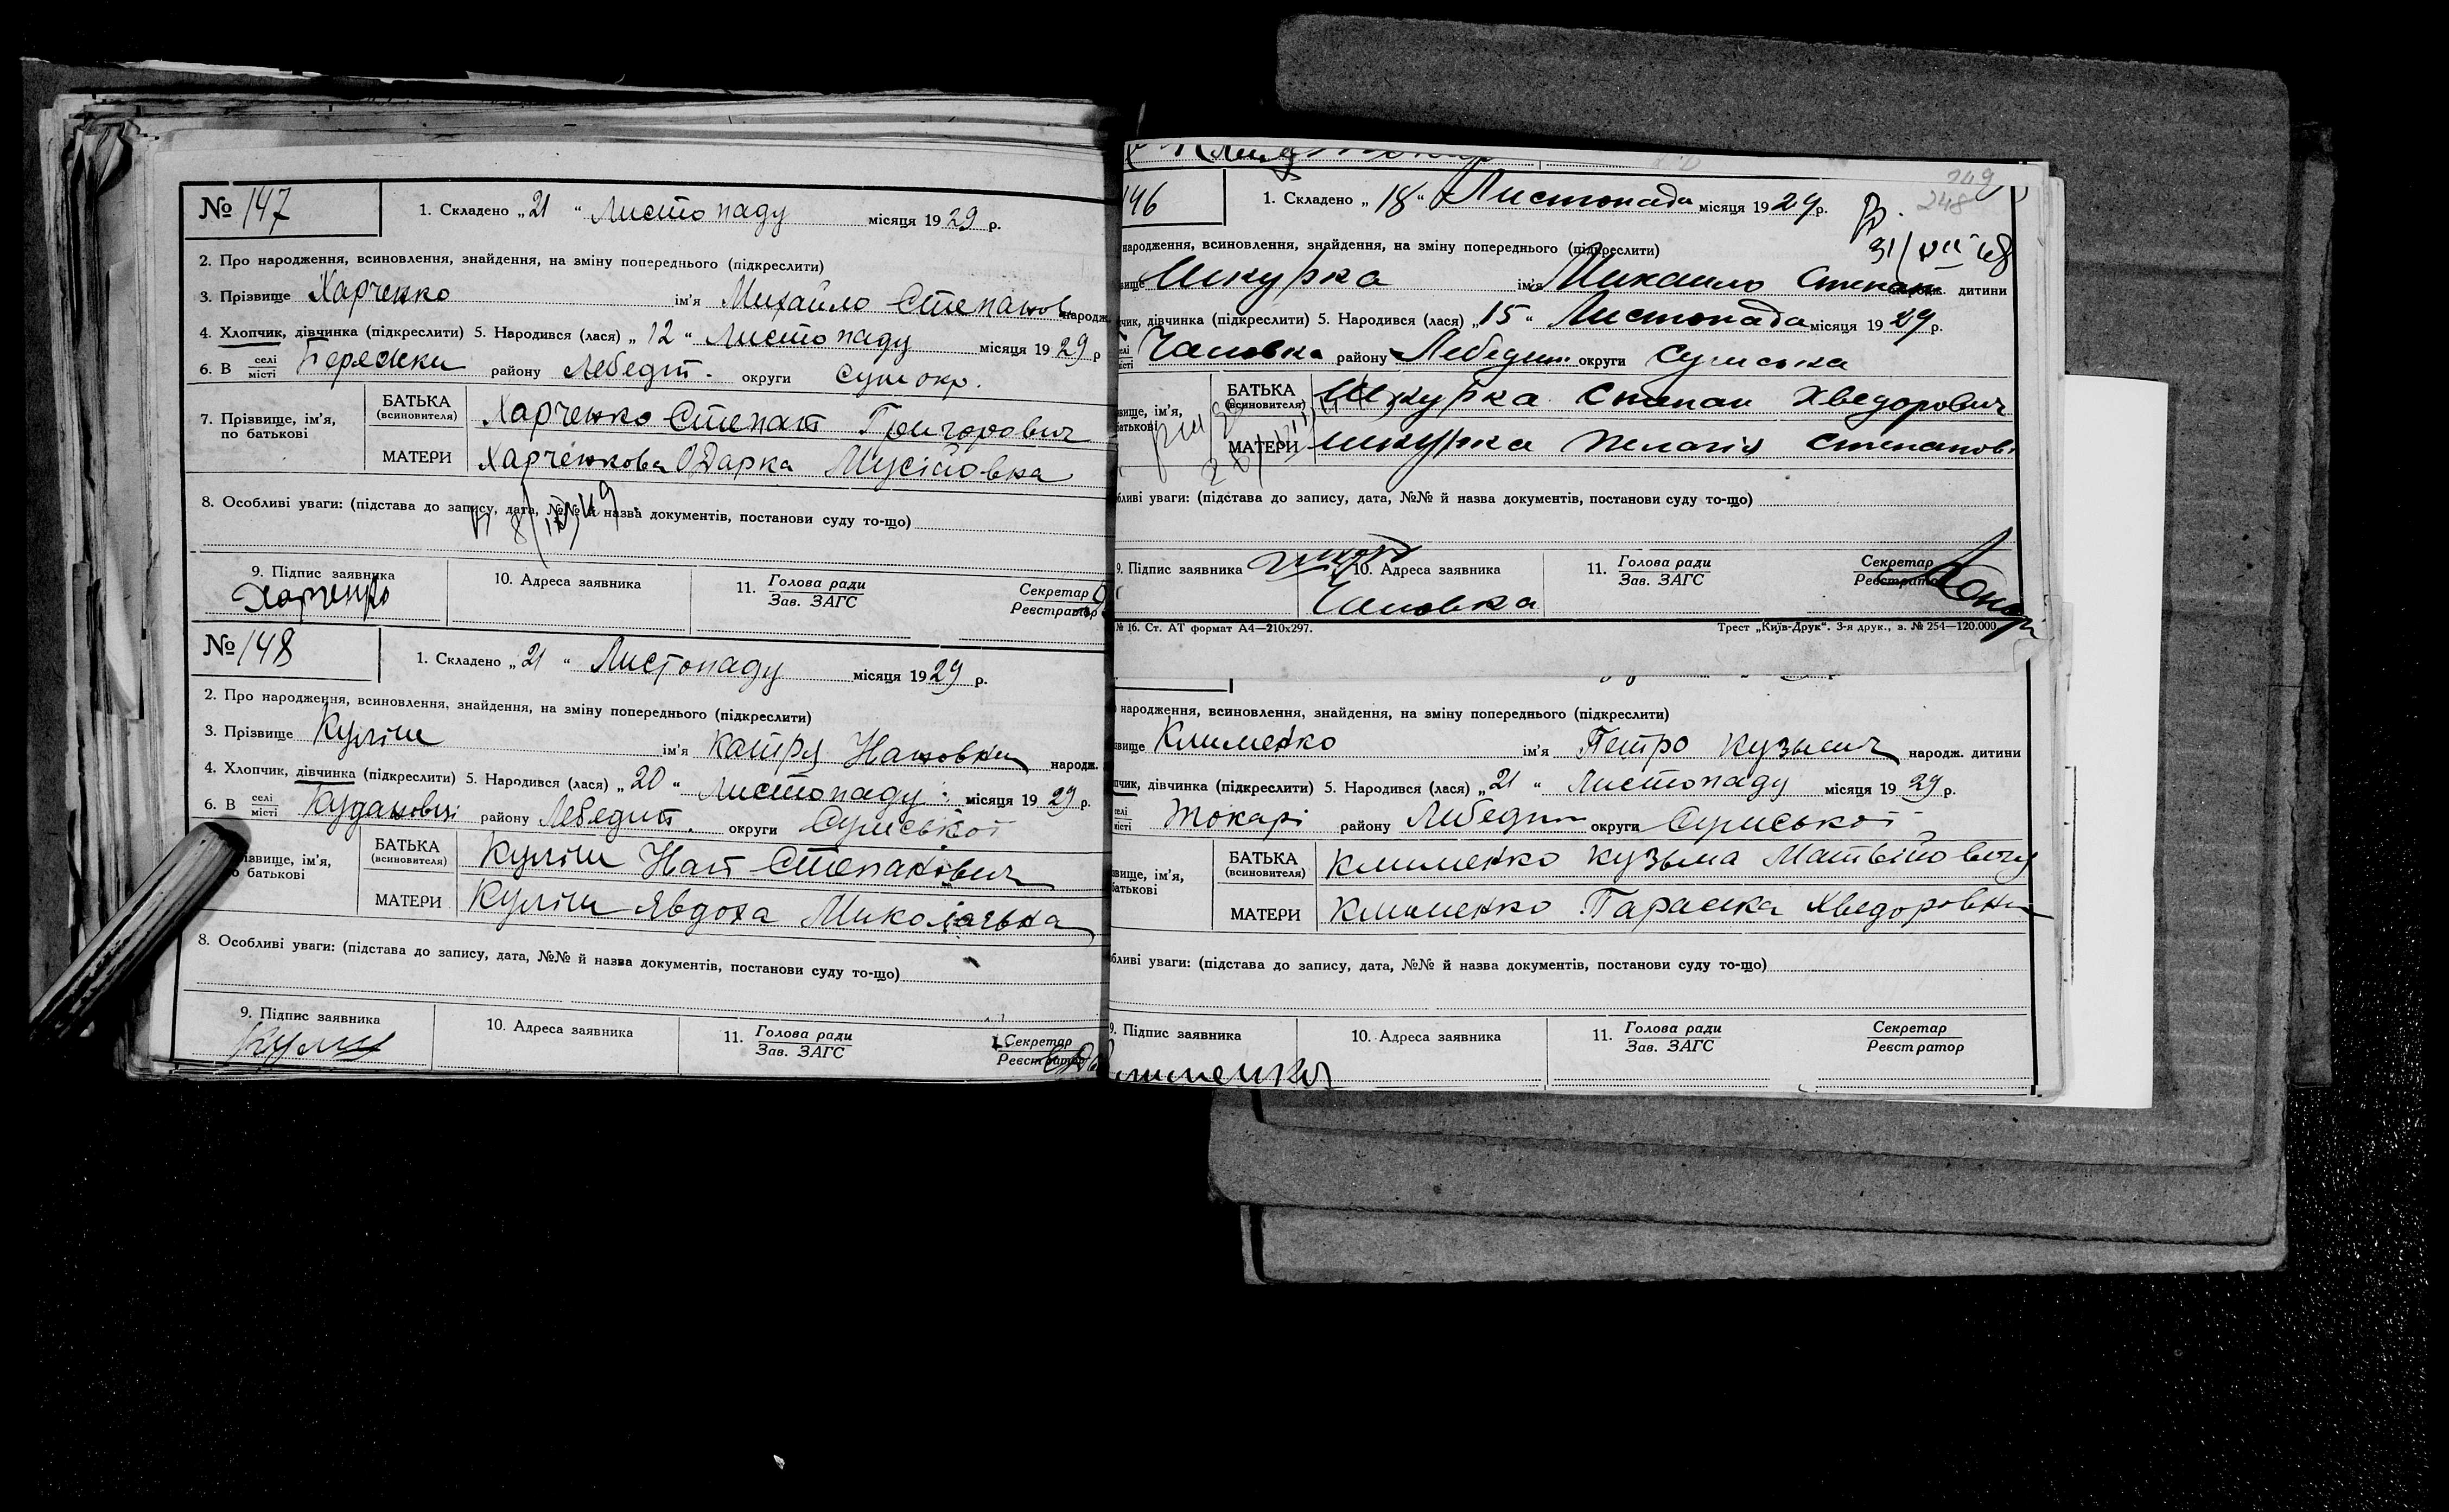 № 147
1. Складено „ 21 “ Листопаду місяця 19 29 р.
2. Про народження, всиновлення, знайдення, на зміну попереднього (підкреслити)
3. Прізвище Харченко ім'я Михайло Степанов народж.
4. Хлопчик, дівчинка (підкреслити) 5. Народився (лася) „ 12 “ Листопаду місяця 19 29 р
6. В селі місті Бережки району Лебедин. округи Сум окр.
7. Прізвище, ім'я, по батькові
БАТЬКА (всиновителя) Харченко Степан Григорович
МАТЕРИ Харченкова Одарка Мусіовка
8. Особливі уваги: (підстава до запису, дата, №№ й назва документів, постанови суду то-що)
9. Підпис заявника Харченко
10. Адреса заявника
11. Голова ради Зав. ЗАГС
Секретар Реєстратор
№ 148
1. Складено „ 21 “ Листопаду місяця 19 29 р.
2. Про народження, всиновлення, знайдення, на зміну попереднього (підкреслити)
3. Прізвище Куліш ім'я Катря Нановни народж.
4. Хлопчик, дівчинка (підкреслити) 5. Народився (лася) „ 20 “ Листопаду місяця 19 29 р.
6. В селі місті району Лебедин. округи Сумської
ізвище, ім'я, о батькові
БАТЬКА (всиновителя) Куліш Нап Степанович
МАТЕРИ Куліш Явдоха
8. Особливі уваги: (підстава до запису, дата, №№ й назва документів, постанови суду то-що)
9. Підпис заявника
10. Адреса заявника
11. Голова ради Зав. ЗАГС
Секретар Реєстратор
249
248
146
1. Складено „ 18 “ Листопада місяця 19 29 р.
31/VII 68
народження, всиновлення, знайдення, на зміну попереднього (підкреслити)
вище Шкурка ім'я Михаило Степан народж. дитини
чик, дівчинка (підкреслити) 5. Народився (лася) „ 15 “ Листопада місяця 19 29 р.
селі місті району Лебедин. округи Сумська
вище, ім'я, батькові
БАТЬКА (всиновителя) Шкурка Степан Хведорович
МАТЕРИ Шкурка Пелагія Степанов
бливі уваги: (підстава до запису, дата, №№ й назва документів, постанови суду то-що)
9. Підпис заявника
10. Адреса заявника
11. Голова ради Зав. ЗАГС
Секретар Реєстратор
№ 16. Ст. АТ формат А4—210х297.
Трест „Київ-Друк“. 3-я друк., з. № 254—120.000
народження, всиновлення, знайдення, на зміну попереднього (підкреслити)
звище Клименко ім'я Петро Кузьмич народж. дитини
пчик, дівчинка (підкреслити) 5. Народився (лася) „ 21 “ Листопаду місяця 19 29 р.
селі місті Токарі району Лебедин округи Сумської
звище, ім'я, батькові
БАТЬКА (всиновителя) Клименко Кузьма Матвійович
МАТЕРИ Клименко Параска Хведоровни
бливі уваги: (підстава до запису, дата, №№ й назва документів, постанови суду то-що)
9. Підпис заявника
10. Адреса заявника
11. Голова ради Зав. ЗАГС
Секретар Реєстратор